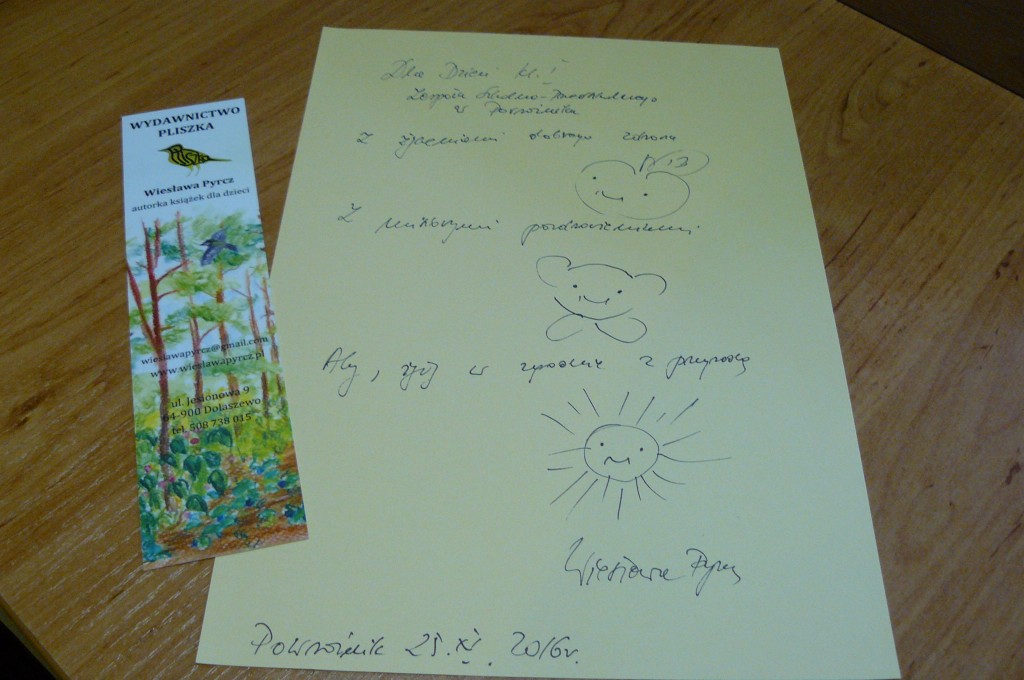 WYDAWNICTWO
PLISZKA
PLISZKA
Wiesława Pyrcz
autorka książek dla dzieci
wieslawapyrcz@gmail.com
www.wieslawapyrcz.pl
ul. Jesionowa 9
64-900 Dolaszewo
tel. 508 738 015
Dla Dzieci kl. I
Zespołu Szkolno-Przedszkolnego
w Powroźniku
Z życzeniami dobrego zdrowia
Z serdecznymi pozdrowieniami
Aby żyć w zgodzie z przyrodą
Wiesława Pyrcz
Powroźnik 25. XI. 2016r.